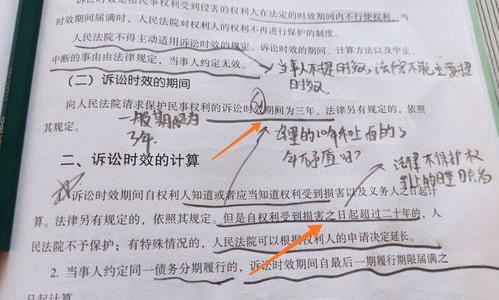 诉讼时效是指民事权利受到侵害的权利人在法定的时效期间内不行使权利，当
时效期间届满时，人民法院对权利人的权利不再进行保护的制度。
人民法院不得主动适用诉讼时效的规定。诉讼时效的期间、计算方法以及中止、
中断的事由由法律规定，当事人约定无效。
当事人不提时效，法官不能主要提
时效
（二）诉讼时效的期间
向人民法院请求保护民事权利的诉讼时效期间为三年。法律另有规定的，依照
其规定。
一般期限为
3年
这里的20年和上面的3
年矛盾吗？
二、诉讼时效的计算
法律不保护权
利上的睡眠者
1. 诉讼时效期间自权利人知道或者应当知道权利受到损害以及义务人之日起计
算。法律另有规定的，依照其规定。但是自权利受到损害之日起超过二十年的，人
民法院不予保护；有特殊情况的，人民法院可以根据权利人的申请决定延长。
2. 当事人约定同一债务分期履行的，诉讼时效期间自最后一期履行期限届满之
日起计算